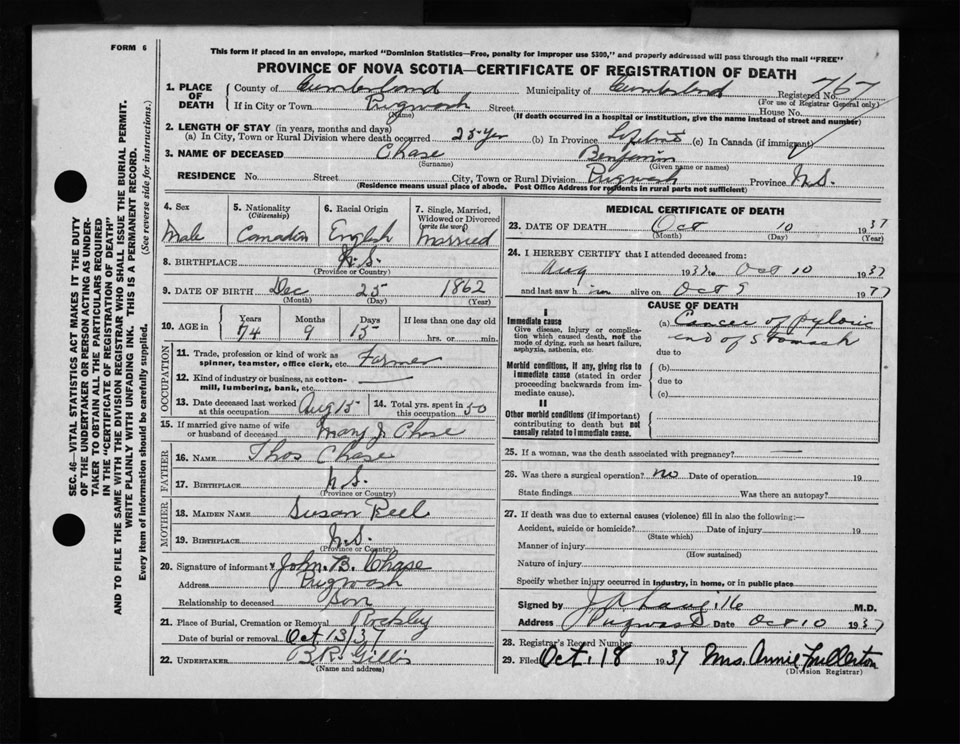 FORM 6
This form if placed in an envelope, marked "Dominion Statistics—Free, penalty for improper use $300," and properly addressed will pass through the mail "FREE"
PROVINCE OF NOVA SCOTIA—CERTIFICATE OF REGISTRATION OF DEATH
1. PLACE OF DEATH County of Cumberland Municipality of Cumberland Registered No. 767
(For use of Registrar General only)
If in City or Town Pugwash Street House No.
(Name) (If death occurred in a hospital or institution, give the name instead of street and number)
2. LENGTH OF STAY (in years, months and days)
(a) In City, Town or Rural Division where death occurred 25 yrs (b) In Province (c) In Canada (if immigrant)
3. NAME OF DECEASED Chase Benjamin
(Surname) (Given name or names)
RESIDENCE No. Street City, Town or Rural Division Pugwash Province N.S.
(Residence means usual place of abode. Post Office Address for residents in rural parts not sufficient)
4. Sex Male
5. Nationality (Citizenship) Canadian
6. Racial Origin English
7. Single, Married, Widowed or Divorced (write the word) Married
8. BIRTHPLACE N.S.
(Province or Country)
9. DATE OF BIRTH Dec 25 1862
(Month) (Day) (Year)
10. AGE in Years Months Days If less than one day old
74 9 15 hrs. or min.
OCCUPATION
11. Trade, profession or kind of work as spinner, teamster, office clerk, etc. Farmer
12. Kind of industry or business, as cotton-mill, lumbering, bank, etc. —
13. Date deceased last worked at this occupation Aug 15
14. Total yrs. spent in this occupation 50
15. If married give name of wife or husband of deceased Mary J. Chase
FATHER
16. NAME Thos Chase
17. BIRTHPLACE N.S.
(Province or Country)
MOTHER
18. MAIDEN NAME Susan Reel
19. BIRTHPLACE N.S.
(Province or Country)
20. Signature of informant John. B. Chase
Address Pugwash
Relationship to deceased Son
21. Place of Burial, Cremation or Removal Rockley
Date of burial or removal Oct 13/37
22. UNDERTAKER B.R. Gillis
(Name and address)
MEDICAL CERTIFICATE OF DEATH
23. DATE OF DEATH Oct 10 1937
(Month) (Day) (Year)
24. I HEREBY CERTIFY that I attended deceased from:
Aug 1932 to Oct 10 1937
and last saw him alive on Oct 9 1937
CAUSE OF DEATH
I
Immediate cause
Give disease, injury or complication which caused death, not the mode of dying, such as heart failure, asphyxia, asthenia, etc.
(a) Cancer of pyloric
end of Stomach
due to
Morbid conditions, if any, giving rise to immediate cause (stated in order proceeding backwards from immediate cause).
(b)
due to
(c)
II
Other morbid conditions (if important) contributing to death but not causally related to immediate cause.
25. If a woman, was the death associated with pregnancy? —
26. Was there a surgical operation? no Date of operation 19
State findings Was there an autopsy?
27. If death was due to external causes (violence) fill in also the following:—
Accident, suicide or homicide? Date of injury 19
(State which)
Manner of injury
(How sustained)
Nature of injury
Specify whether injury occurred in industry, in home, or in public place
Signed by M.D.
Address Pugwash Date Oct 10 1937
28. Registrar's Record Number
29. Filed Oct. 18 1937 Mrs. Annie Fullerton
(Division Registrar)
SEC. 46—VITAL STATISTICS ACT MAKES IT THE DUTY
OF THE UNDERTAKER OR PERSON ACTING AS UNDER-
TAKER TO OBTAIN ALL THE PARTICULARS REQUIRED
IN THE "CERTIFICATE OF REGISTRATION OF DEATH"
AND TO FILE THE SAME WITH THE DIVISION REGISTRAR WHO SHALL ISSUE THE BURIAL PERMIT.
WRITE PLAINLY WITH UNFADING INK. THIS IS A PERMANENT RECORD.
Every item of information should be carefully supplied. (See reverse side for instructions.)